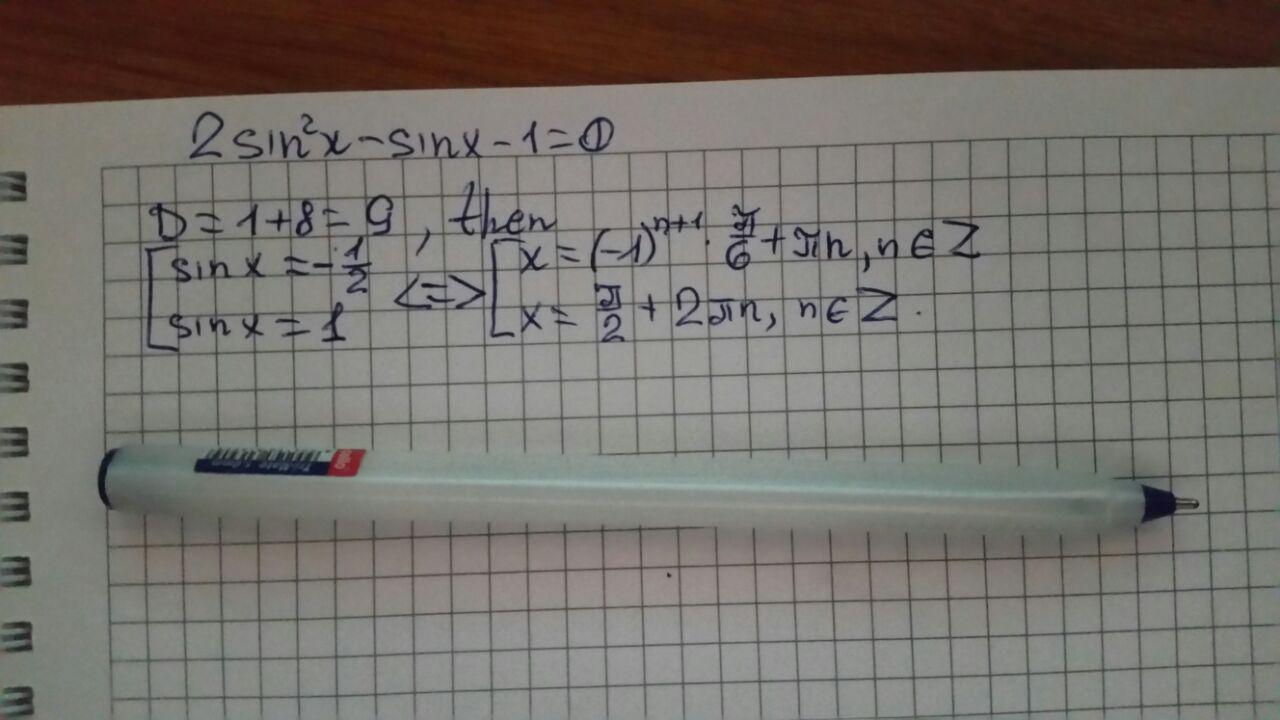 2sin²x - sinx - 1 = 0
D = 1 + 8 = 9, then
[ sin x = -1/2
sin x = 1 <=> [ x = (-1)ⁿ⁺¹ · π/6 + πn, n ∈ Z
x = π/2 + 2πn, n ∈ Z.